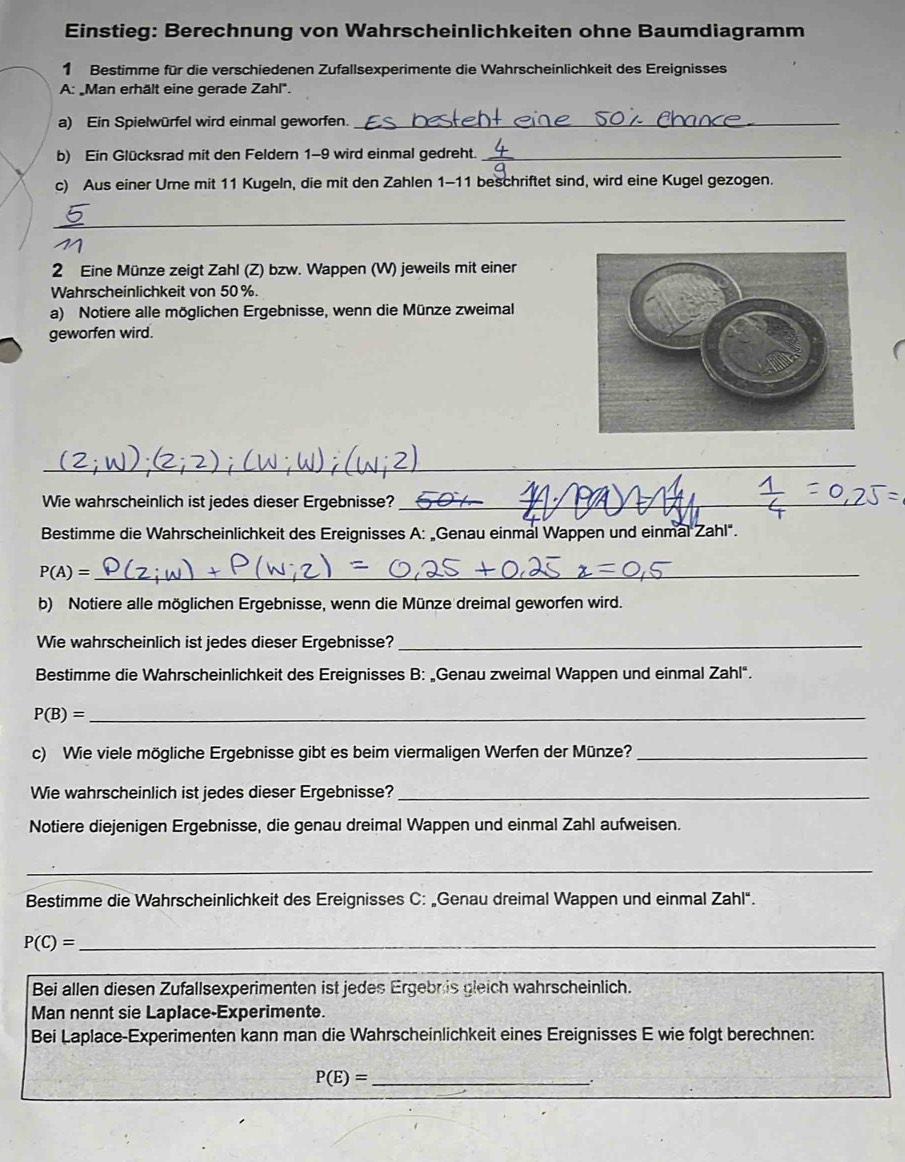 Einstieg: Berechnung von Wahrscheinlichkeiten ohne Baumdiagramm
1 Bestimme für die verschiedenen Zufallsexperimente die Wahrscheinlichkeit des Ereignisses
A: „Man erhält eine gerade Zahl".
a) Ein Spielwürfel wird einmal geworfen. Es besteht eine 50% Chance.
b) Ein Glücksrad mit den Feldern 1–9 wird einmal gedreht. 4/9
c) Aus einer Urne mit 11 Kugeln, die mit den Zahlen 1–11 beschriftet sind, wird eine Kugel gezogen.
5/11
2 Eine Münze zeigt Zahl (Z) bzw. Wappen (W) jeweils mit einer
Wahrscheinlichkeit von 50 %.
a) Notiere alle möglichen Ergebnisse, wenn die Münze zweimal
geworfen wird.
(Z;W);(Z;Z);(W;W);(W;Z)
Wie wahrscheinlich ist jedes dieser Ergebnisse? 50% 1/4 = 0,25 =
Bestimme die Wahrscheinlichkeit des Ereignisses A: „Genau einmal Wappen und einmal Zahl".
P(A) = P(Z;W) + P(W;Z) = 0,25 + 0,25 = 0,5
b) Notiere alle möglichen Ergebnisse, wenn die Münze dreimal geworfen wird.
Wie wahrscheinlich ist jedes dieser Ergebnisse?
Bestimme die Wahrscheinlichkeit des Ereignisses B: „Genau zweimal Wappen und einmal Zahl".
P(B) =
c) Wie viele mögliche Ergebnisse gibt es beim viermaligen Werfen der Münze?
Wie wahrscheinlich ist jedes dieser Ergebnisse?
Notiere diejenigen Ergebnisse, die genau dreimal Wappen und einmal Zahl aufweisen.
Bestimme die Wahrscheinlichkeit des Ereignisses C: „Genau dreimal Wappen und einmal Zahl".
P(C) =
Bei allen diesen Zufallsexperimenten ist jedes Ergebnis gleich wahrscheinlich.
Man nennt sie Laplace-Experimente.
Bei Laplace-Experimenten kann man die Wahrscheinlichkeit eines Ereignisses E wie folgt berechnen:
P(E) = .